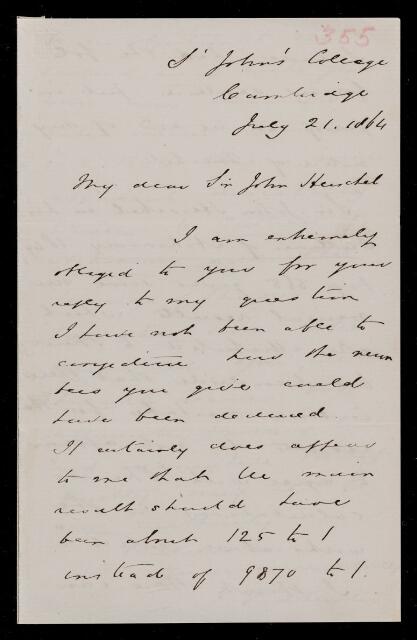 355
St John's College
Cambridge
July 21. 1864
My dear Sir John Herschel
I am extremely
obliged to you for your
reply to my question
I have not been able to
conjecture how the num
bers you give could
have been deduced.
It certainly does appear
to me that the main
result should have
been about 125 to 1
instead of 9870 to 1.